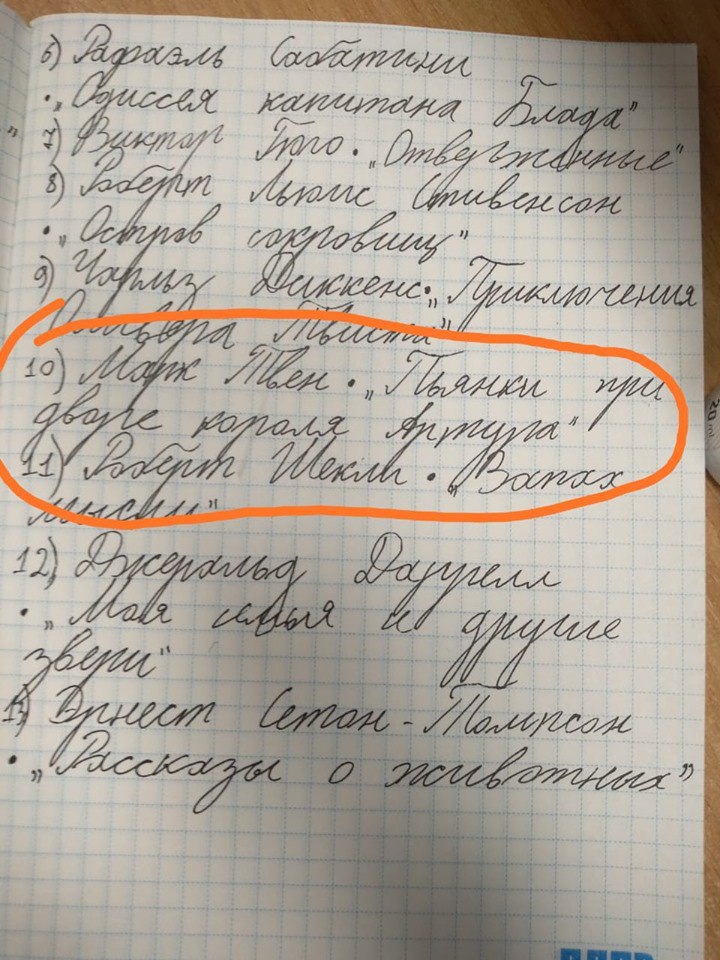 6) Рафаэль Сабатини
• „Одиссея капитана Блада"
7) Виктор Гюго • „Отверженные"
8) Роберт Льюис Стивенсон
• „Остров сокровищ"
9) Чарльз Диккенс • „Приключения
Оливера Твиста"
10) Марк Твен • „Пьянки при
дворе короля Артура"
11) Роберт Шекли • „Запах
мысли"
12) Джеральд Даррелл
• „Моя семья и другие
звери"
13) Эрнест Сетон-Томпсон
• „Рассказы о животных"